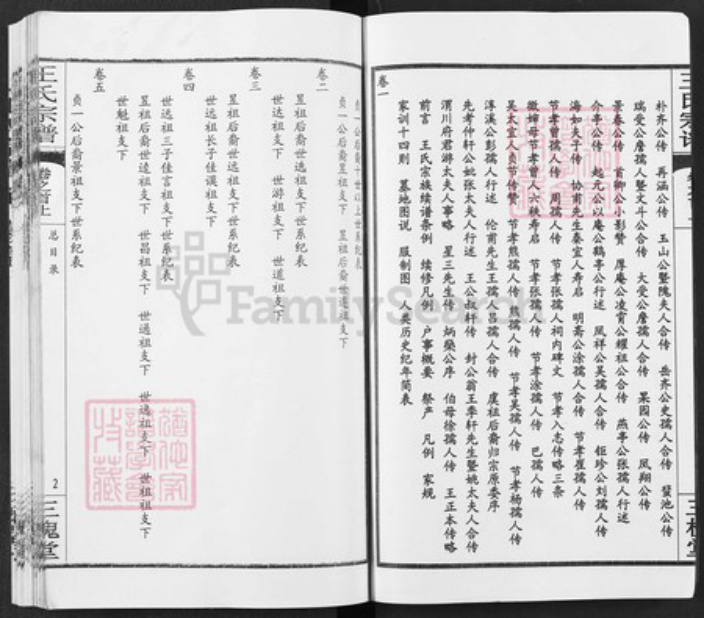 王氏宗谱
卷一
朴齐公传 再涵公传 玉山公暨隗夫人合传 岳齐公史孺人合传 莹池公传
瑞受公詹孺人暨文斗公合传 大受公詹孺人合传 果园公传 凤翔公传
景春公传 首卿公小影赞 厚庵公凌霄公耀祖公合传 燕亭公张孺人行述
介亭公传 起元公以庵公鹤亭公行述 凤祥公吴孺人合传 钜珍公刘孺人传
海如夫子传 协甫先生秦宜人寿启 明斋公涂孺人合传 节孝崔孺人传
节孝曾孺人传 周孺人传 节孝张孺人祠内碑文 节孝入志传略三条
徽婶母节孝曾人六秩寿启 节孝张孺人传 节孝涂孺人传 巴孺人传
吴太宜人贞节传赞 节孝熊孺人传 熊孺人传 节孝吴孺人传 节孝杨孺人传
淳溪公彭孺人行述 伦甫先生王孺人吕孺人合传 虞祖后裔归宗原委序
先考仲轩公妣张太夫人行述 王公叔轩传 封公翁王季轩先生暨姚太夫人合传
渭川府君游太夫人事略 星三先生传 炳燊公序 伯母徐孺人传 王正本传略
前言 王氏宗族续谱条例 续修凡例 户事概要 祭产 凡例 家规
家训十四则 墓地图说 服制图 人类历史纪年简表
贞一公后裔十世以上世系纪表
贞一公后裔昱祖支下 昱祖后裔世选祖支下
卷二
昱祖后裔世选祖支下世系纪表
世达祖支下 世游祖支下 世道祖支下
卷三
昱祖后裔世远祖支下世系纪表
世远祖长子佳谟祖支下
卷四
世远祖三子佳言祖支下世系纪表
昱祖后裔世逵祖支下 世昌祖支下 世通祖支下 世逸祖支下 世祖祖支下
世魁祖支下
卷五
贞一公后裔景祖支下世系纪表
王氏宗谱
卷之首上
总目录
2
三槐堂
FamilySearch